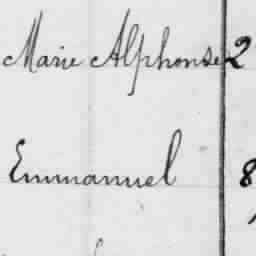 Marie Alphonse 2
Emmanuel 8